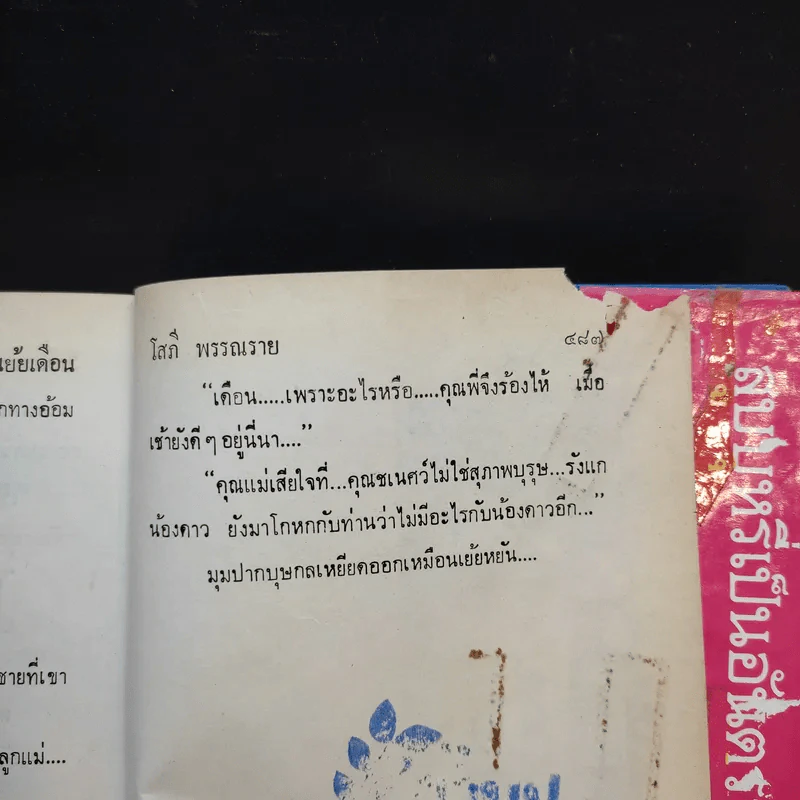 ยย้ยเดือน
กทางอ้อม
ชายที่เขา
ลูกแม่....
โสภี พรรณราย ๔๘๗
“เดือน.....เพราะอะไรหรือ.....คุณพี่จึงร้องไห้ เมื่อ
เช้ายังดีๆ อยู่นี่นา....”
“คุณแม่เสียใจที่...คุณชเนศว์ไม่ใช่สุภาพบุรุษ...รังแก
น้องดาว ยังมาโกหกกับท่านว่าไม่มีอะไรกับน้องดาวอีก...”
มุมปากบุษกลเหยียดออกเหมือนเย้ยหยัน....
สูบบุหรี่เป็นอันตร